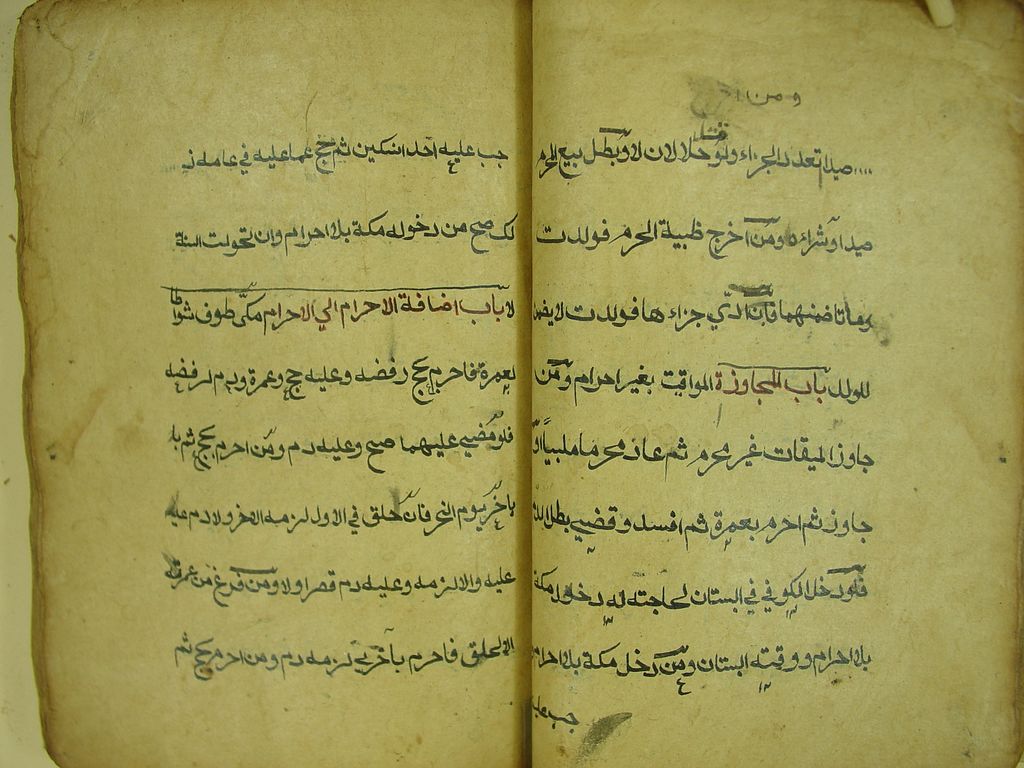 ومن
صيدا تعدد الجزاء ولو قتل حلالان لا وبطل بيع المحرم
صيدا وشراءه ومن اخرج ظبية الحرم فولدت
وماتا ضمنهما فان ادي جزاءها فولدت لا يضمن
الولد باب المجاوزة المواقيت بغير احرام ومن
جاوز الميقات غير محرم ثم عاد محرما ملبيا او
جاوز ثم احرم بعمرة ثم افسد وقضي بطل الدم
فلو دخل الكوفي في البستان لحاجته له دخول مكة
بلا احرام ووقته البستان ومن دخل مكة بلا احرام
جب عليه
جب عليه احد النسكين ثم حج عما عليه في عامه ذ
لك صح من دخوله مكة بلا احرام وان تحولت السنة
لا باب اضافة الاحرام الي الاحرام مكي طوف شوطا
لعمرة فاحرم بحج رفضه وعليه حج وعمرة ودم لرفضه
فلو مضي عليهما صح وعليه دم ومن احرم بحج ثم با
باخر يوم النحر فان حلق في الاول لزمه الاخر ولا دم عليه
عليه والا لزمه وعليه دم قصر او لا ومن فرغ من عمرته
الا لحلق فاحرم باخري لزمه دم ومن احرم بحج ثم